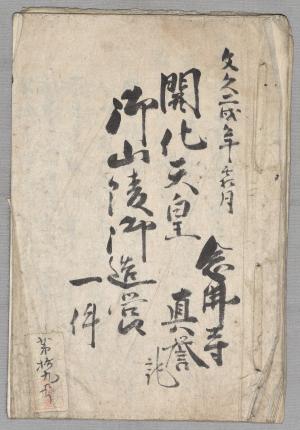 文久二戌年霜月
開化天皇
御山陵御造営
一件
念佛寺
真誉
記
第拾九号